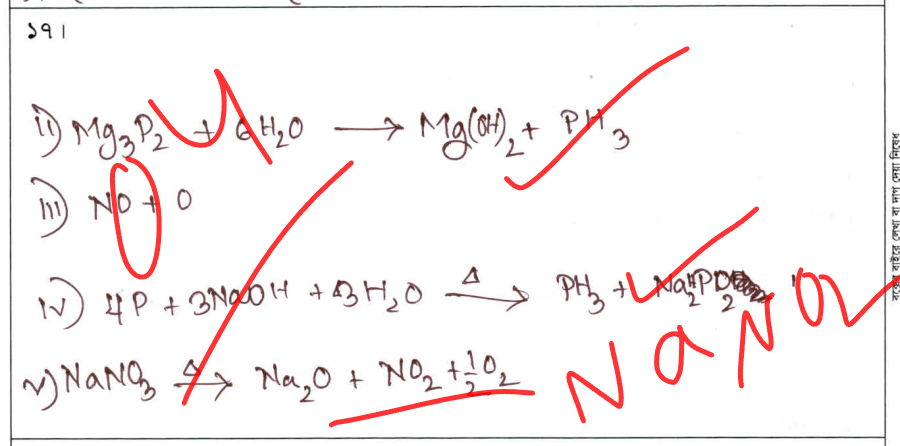 ১৭।
ii) Mg₃P₂ + 6H₂O ⟶ Mg(OH)₂ + PH₃
iii) NO + O
iv) 4P + 3NaOH + 3H₂O —Δ→ PH₃ +
v) NaNO₃ —Δ→ Na₂O + NO₂ + ½O₂
NaNO₂
বক্সের বাইরে লেখা বা দাগ দেয়া নিষেধ